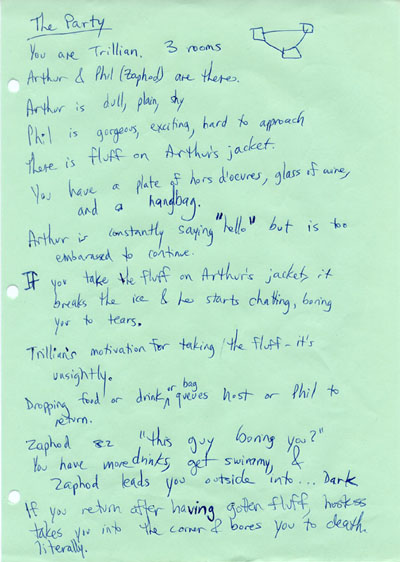 The Party
You are Trillian. 3 rooms
Arthur & Phil (Zaphod) are there.
Arthur is dull, plain, shy
Phil is gorgeous, exciting, hard to approach
There is fluff on Arthur's jacket.
You have a plate of hors d'oevres, glass of wine,
and a handbag.
Arthur is constantly saying "hello" but is too
embarassed to continue.
If you take the fluff on Arthur's jacket, it
breaks the ice & he starts chatting, boring
you to tears.
Trillian's motivation for taking the fluff - it's
unsightly.
Dropping food or drink or bag queues host or Phil to
return.
Zaphod "This guy boring you?"
You have more drinks, get swimmy, &
Zaphod leads you outside into... Dark
If you return after having gotten fluff, hostess
takes you into the corner & bores you to death.
literally.